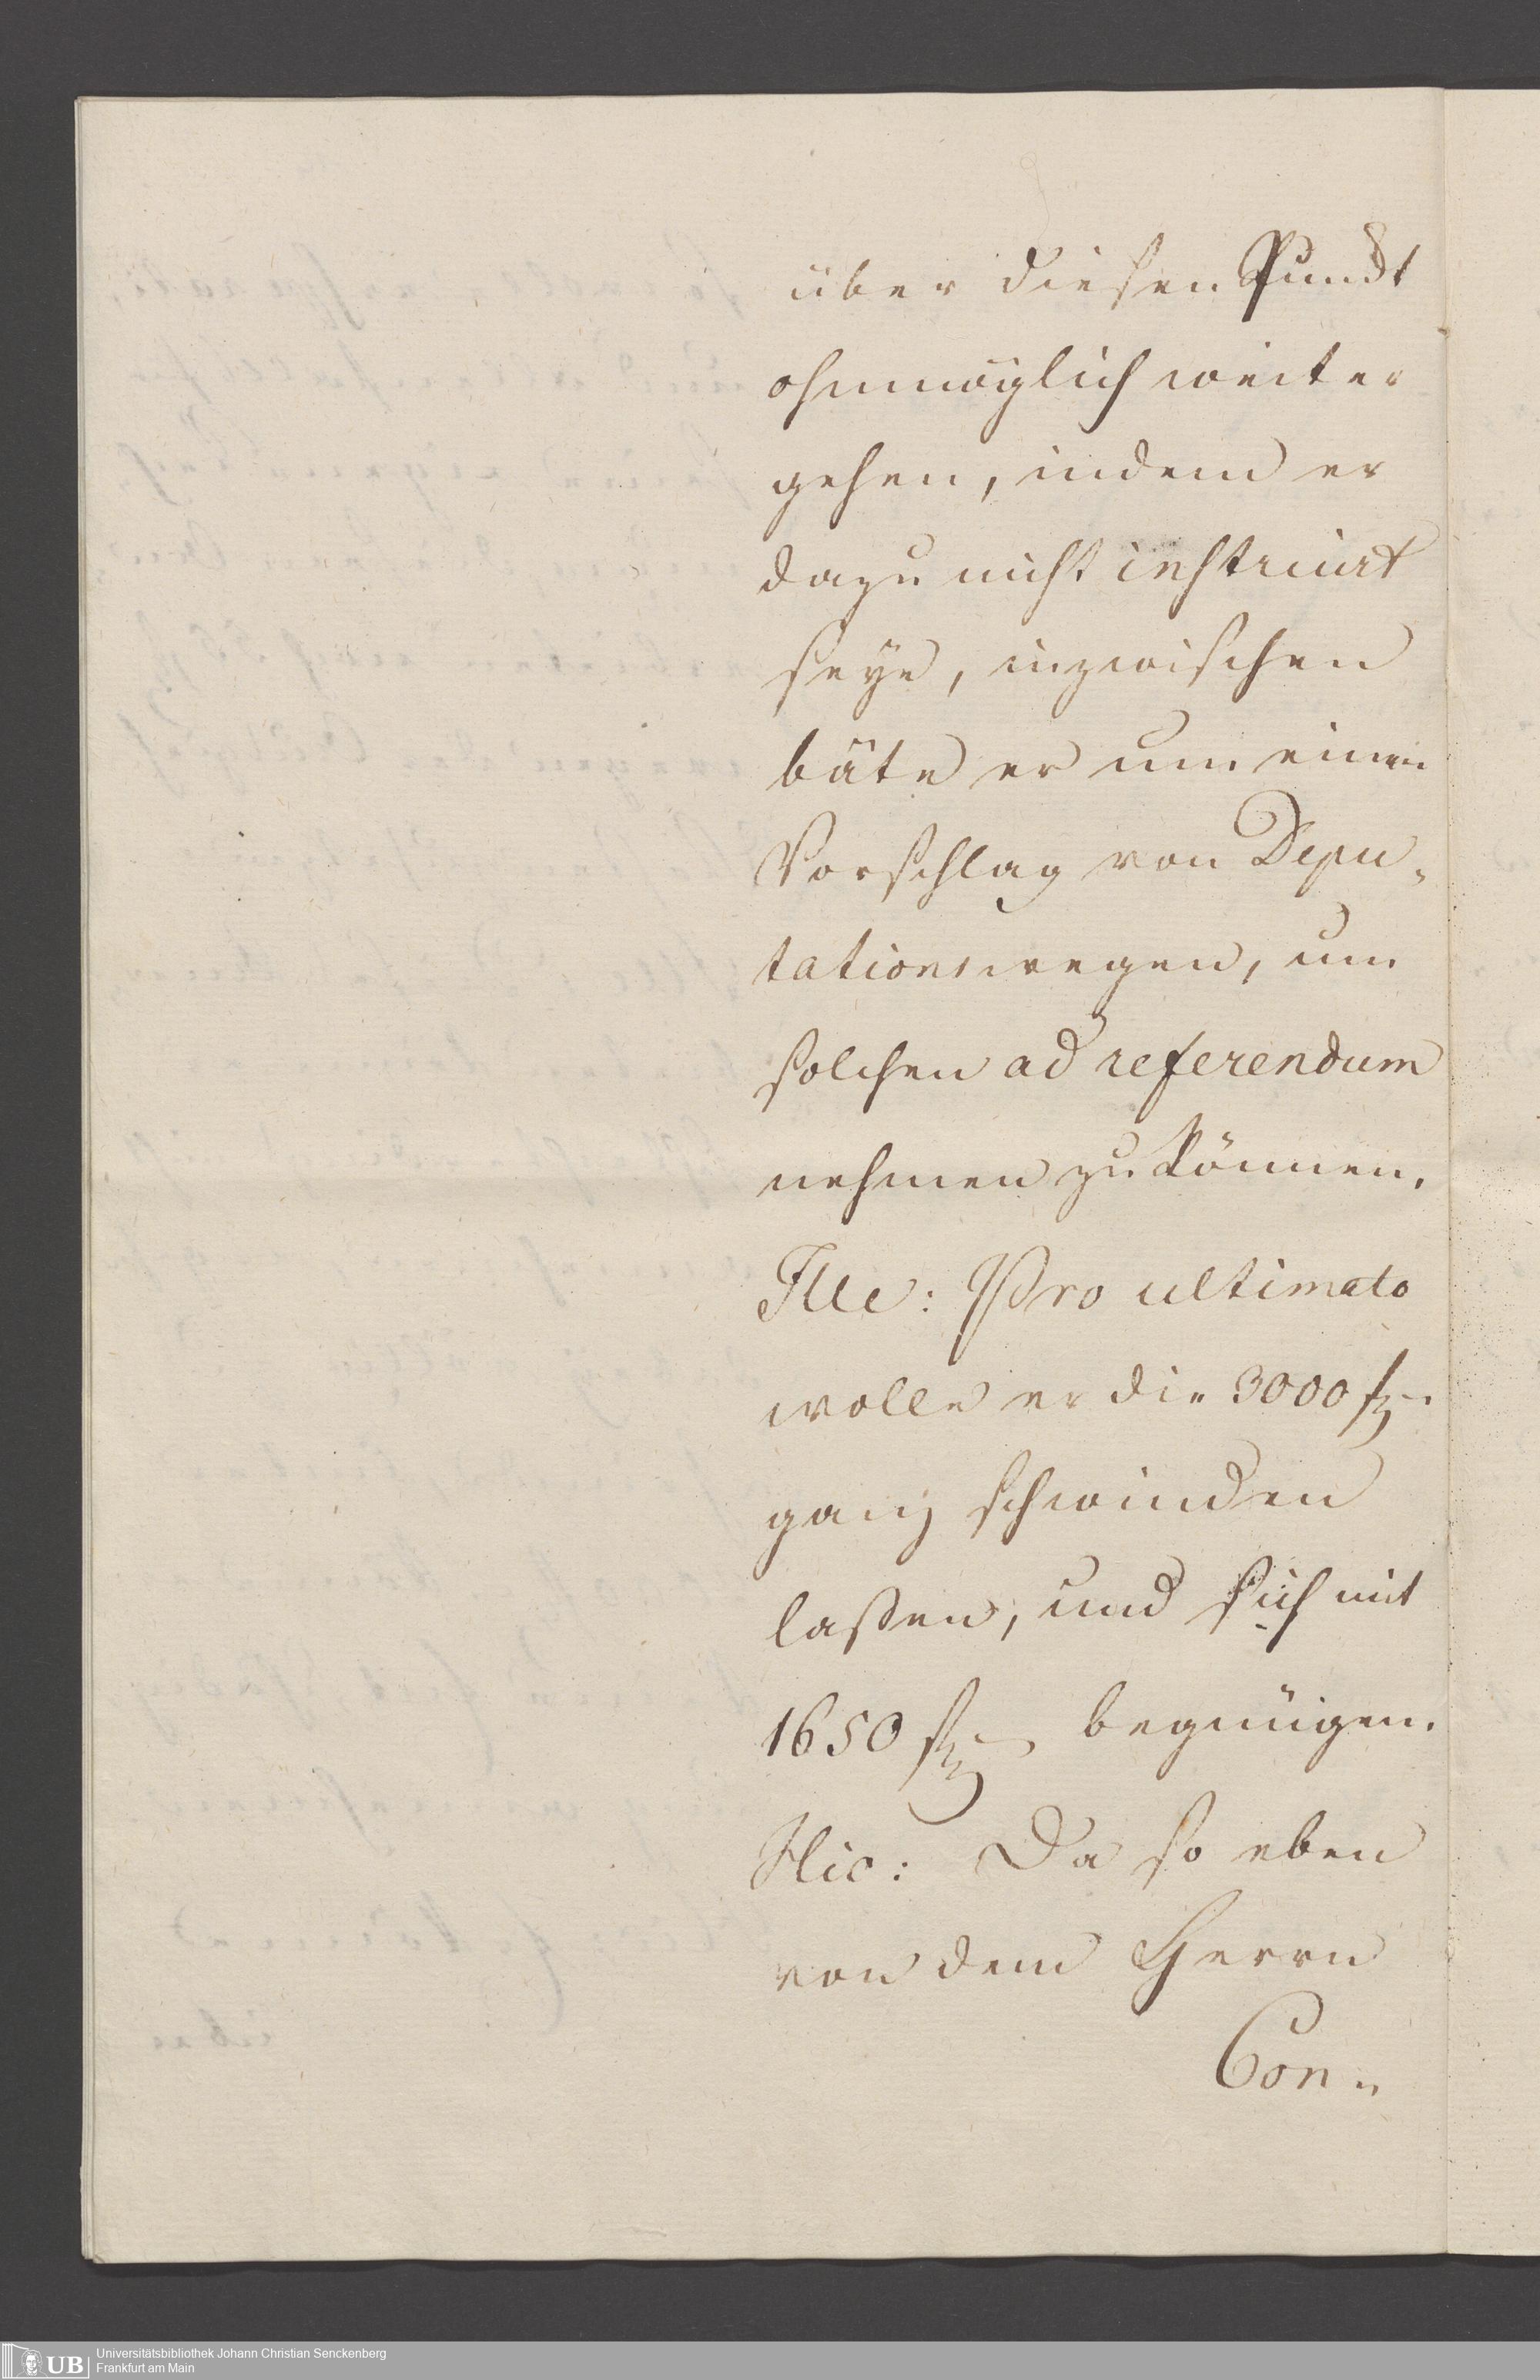 über diesen Punckt
ohnmöglich weiter
gehen, indem er
dazu nicht instruirt
seye, inzwischen
bäte er um einen
Vorschlag von Depu-
tationswegen, um
solchen ad referendum
nehmen zu können.
Ille: Pro ultimato
wolle er die 3000 fl
ganz schwinden
laßen, und sich mit
1650 fl begnügen.
Hic: Da so eben
von dem Herrn
Con-
UB
Universitätsbibliothek Johann Christian Senckenberg
Frankfurt am Main